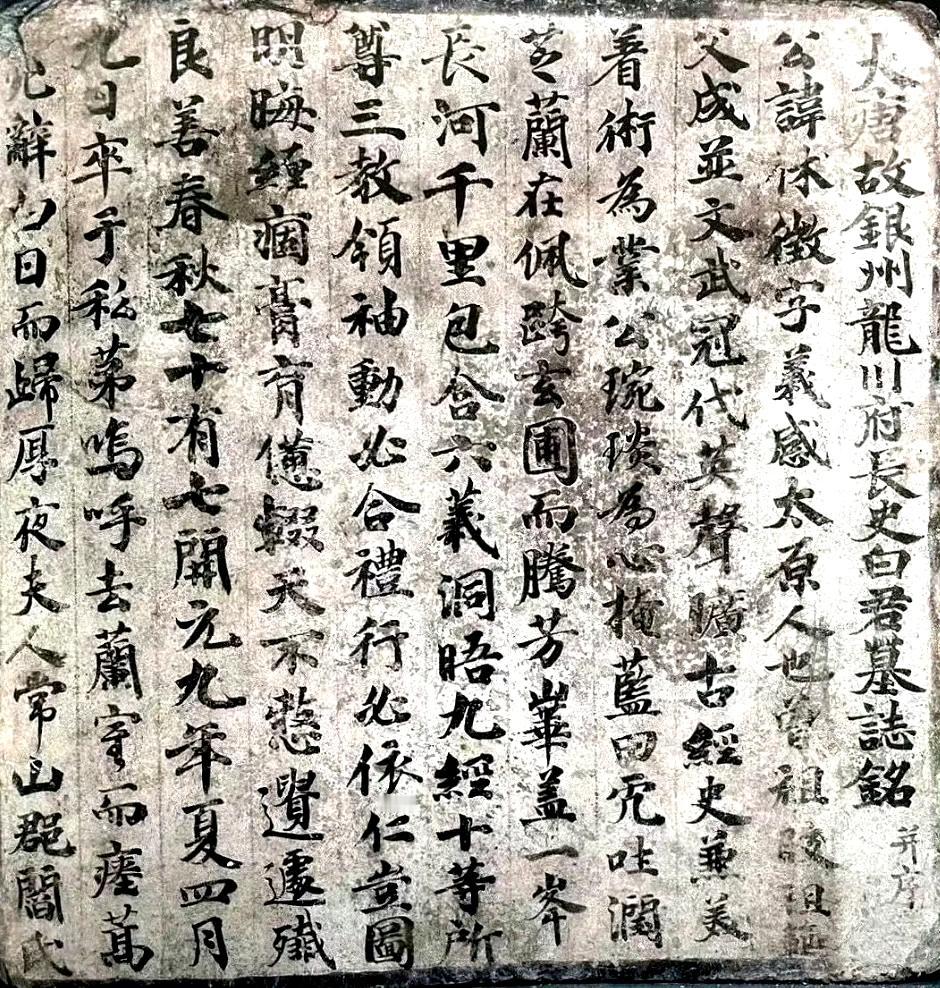 大唐故銀州龍川府長史白君墓誌銘并序
公諱休徵字義感太原人也曾祖陵祖
父成並文武冠代英聲曠古經史兼美
著術為業公琬琰為心掩藍田而吐潤
芝蘭在佩跨玄圃而騰芳崋盖一峯
長河千里包含六義洞晤九經十等所
尊三教領袖動必合禮行必依仁豈圖
明晦纏痼膏肓儵輟天不憖遺遽殲
良善春秋七十有七開元九年夏四月
九日卒于私第嗚呼去蘭室而瘞萬
兆辭白日而歸厚夜夫人常山郡閻氏